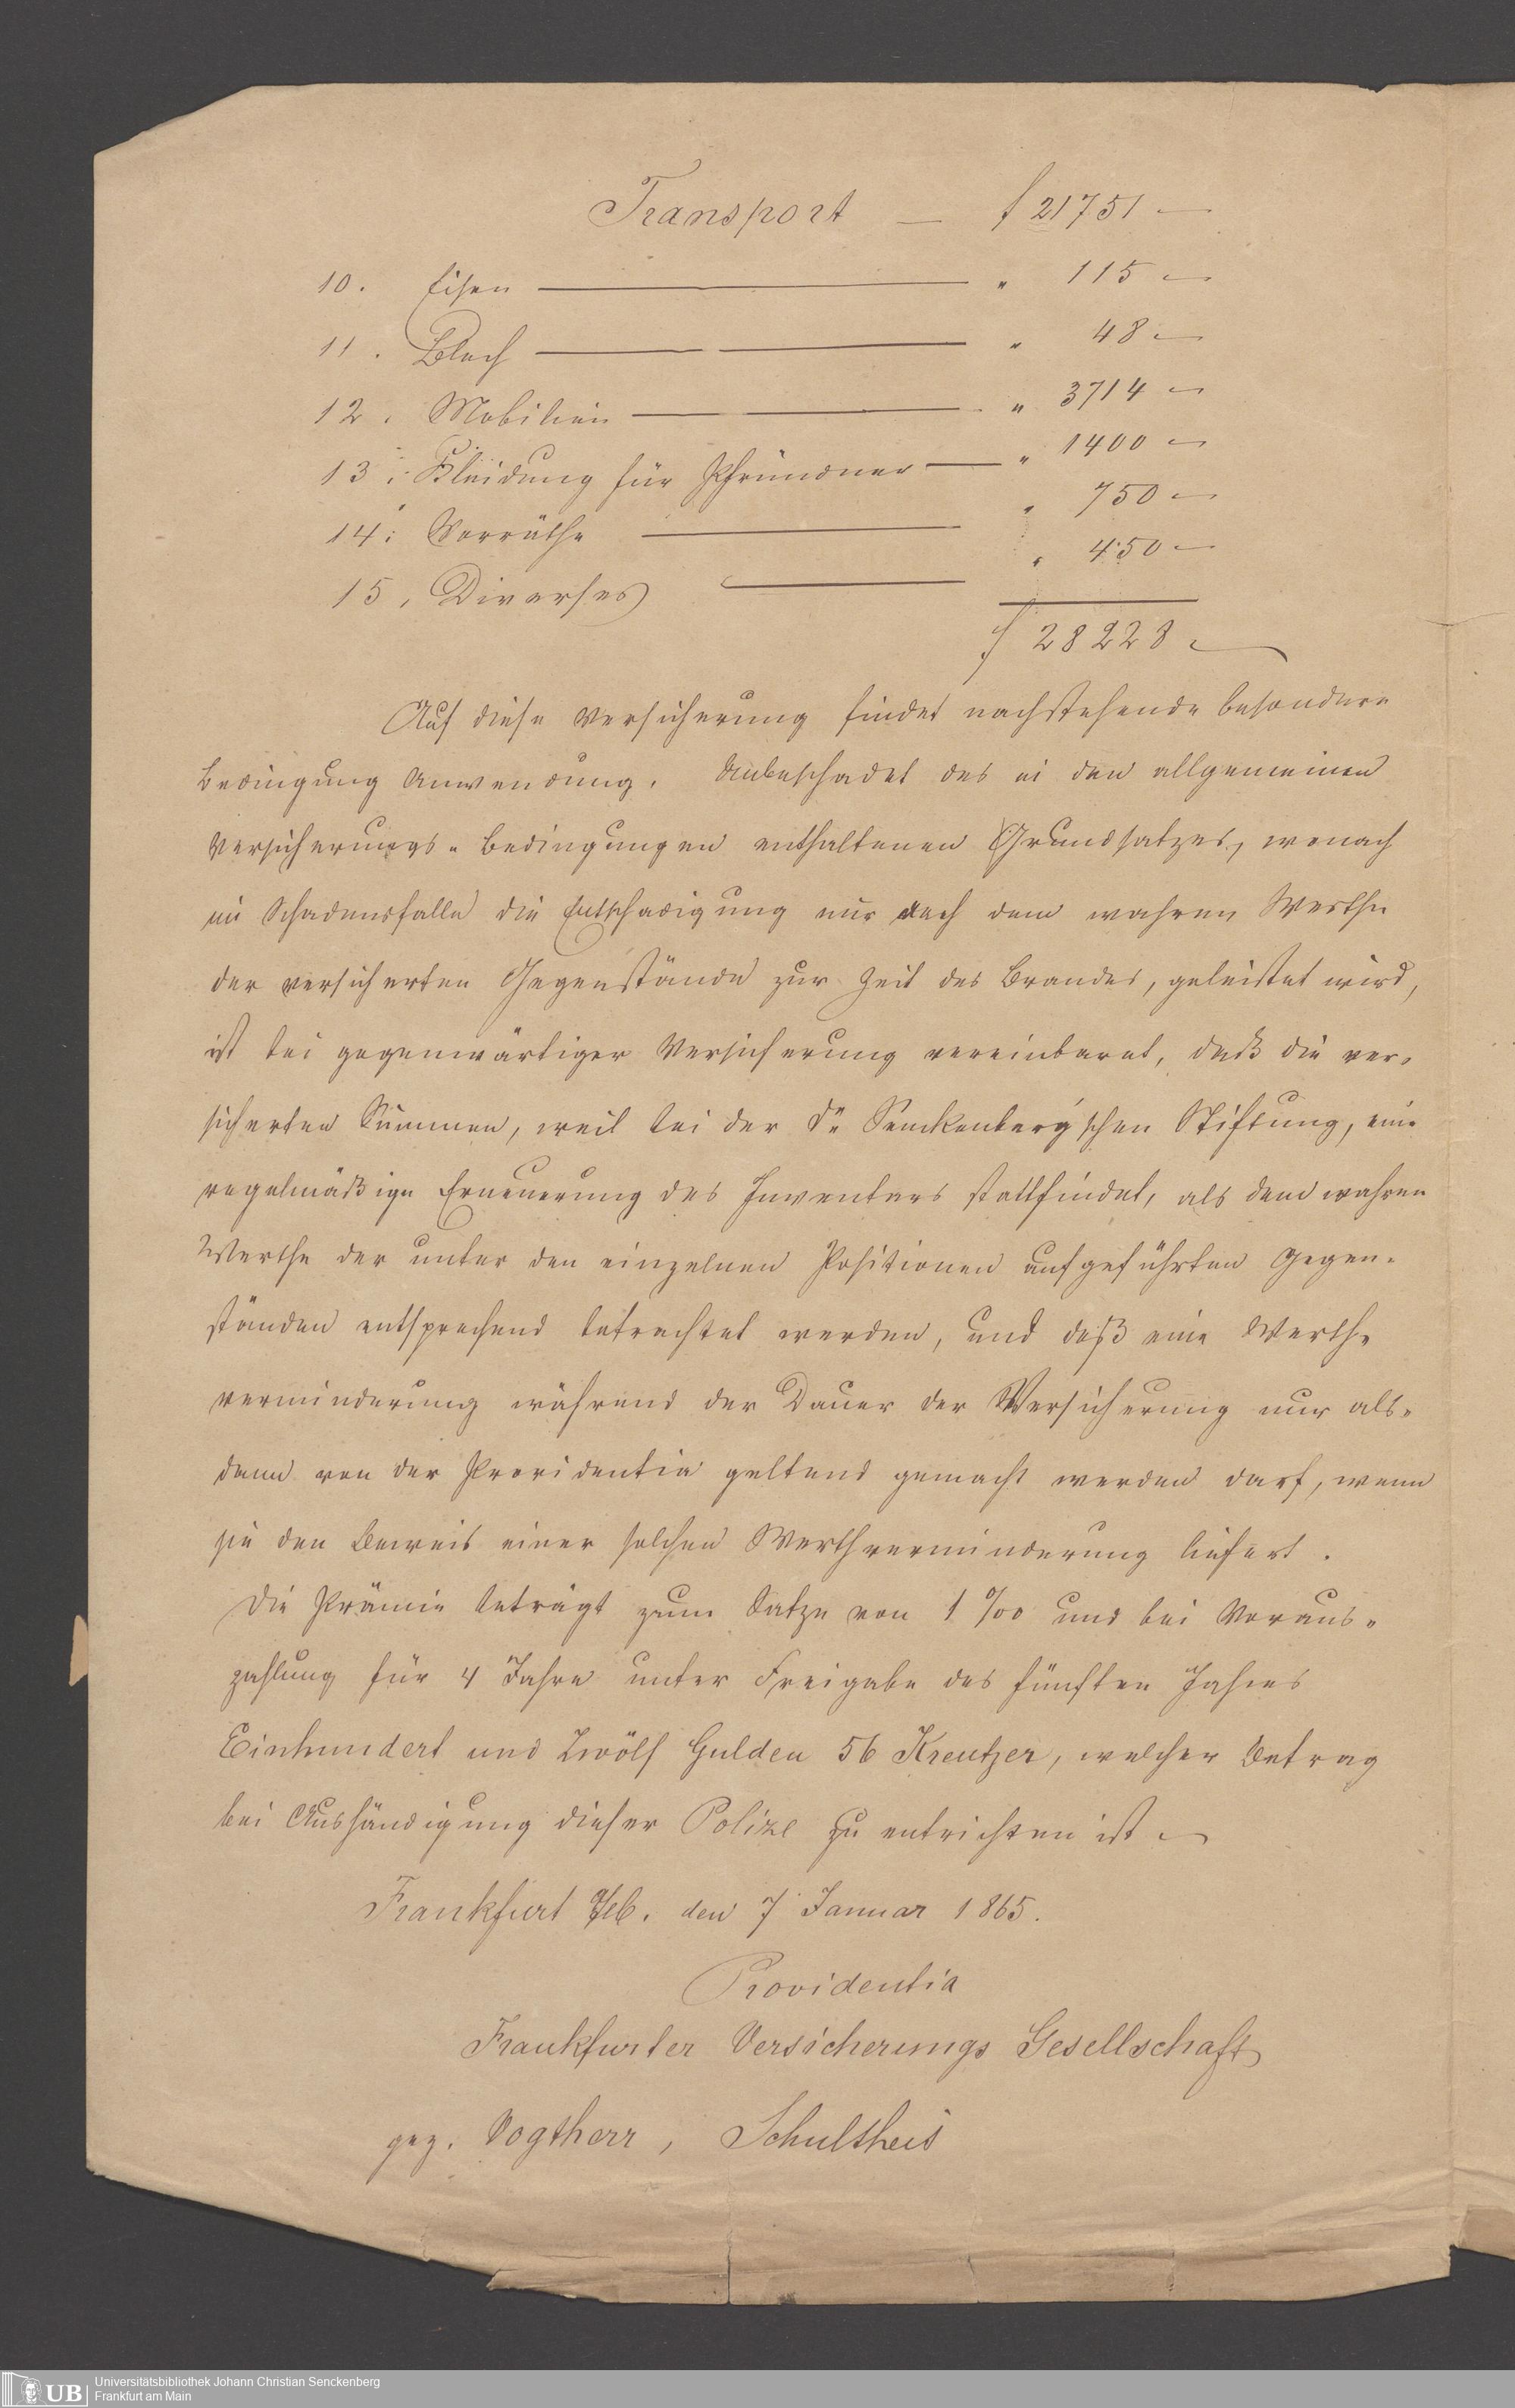 Transport — f 21751 —
10. Eisen — " 115 —
11. Blech — " 48 —
12. Mobilien — " 3714 —
13. Kleidung für Pfründner — " 1400 —
14. Vorräthe — " 750 —
15. Diverses — " 450 —
f 28228 —
Auf diese Versicherung findet nachstehende besondere
Bedingung Anwendung. Unbeschadet des in den allgemeinen
Versicherungs-Bedingungen enthaltenen Grundsatzes, wonach
im Schadensfalle die Entschädigung nur nach dem wahren Werthe
der versicherten Gegenstände zur Zeit des Brandes, geleistet wird,
ist bei gegenwärtiger Versicherung vereinbaret, daß die ver-
sicherten Summen, weil bei der Dr Senckenberg'schen Stiftung, eine
regelmäßige Erneuerung des Inventars stattfindet, als dem wahren
Werthe der unter den einzelnen Positionen aufgeführten Gegen-
ständen entsprechend betrachtet werden, und daß eine Werth-
verminderung während der Dauer der Versicherung nur als-
dann von der Providentia geltend gemacht werden darf, wenn
sie den Beweis einer solchen Werthverminderung liefert.
Die Prämie beträgt zum Satze von 1 ‰ und bei Voraus-
zahlung für 4 Jahre unter Freigabe des fünften Jahres
Einhundert und Zwölf Gulden 56 Kreutzer, welcher Betrag
bei Aushändigung dieser Polize zu entrichten ist —
Frankfurt den 7 Januar 1865.
Providentia
Frankfurter Versicherungs Gesellschaft
gez. Vogtherr, Schultheis
UB
Universitätsbibliothek Johann Christian Senckenberg
Frankfurt am Main